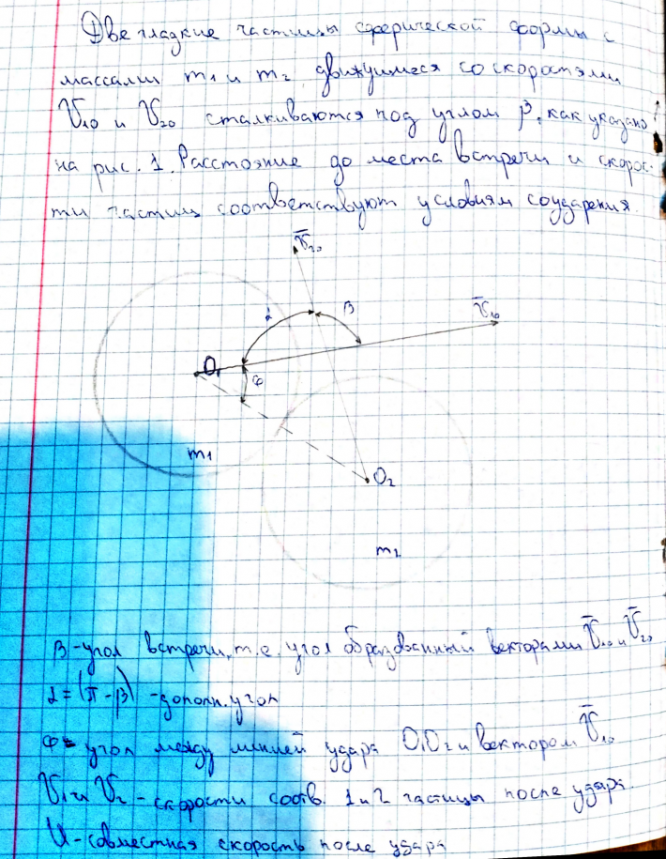 Две гладкие частицы сферической формы с
массами m1 и m2, движущиеся со скоростями
V10 и V20 сталкиваются под углом β, как указано
на рис. 1. Расстояние до места встречи и скорос-
ти частиц соответствуют условиям соударения.
V̅20
α β V̅10
O1
φ
m1
O2
m2
β - угол встречи, т.е. угол образованный векторами V̅10 и V̅20
α = (π - β) - дополн. угол
φ - угол между линией удара O1O2 и вектором V̅10
V1 и V2 - скорости соотв. 1 и 2 частицы после удара.
U - совместная скорость после удара